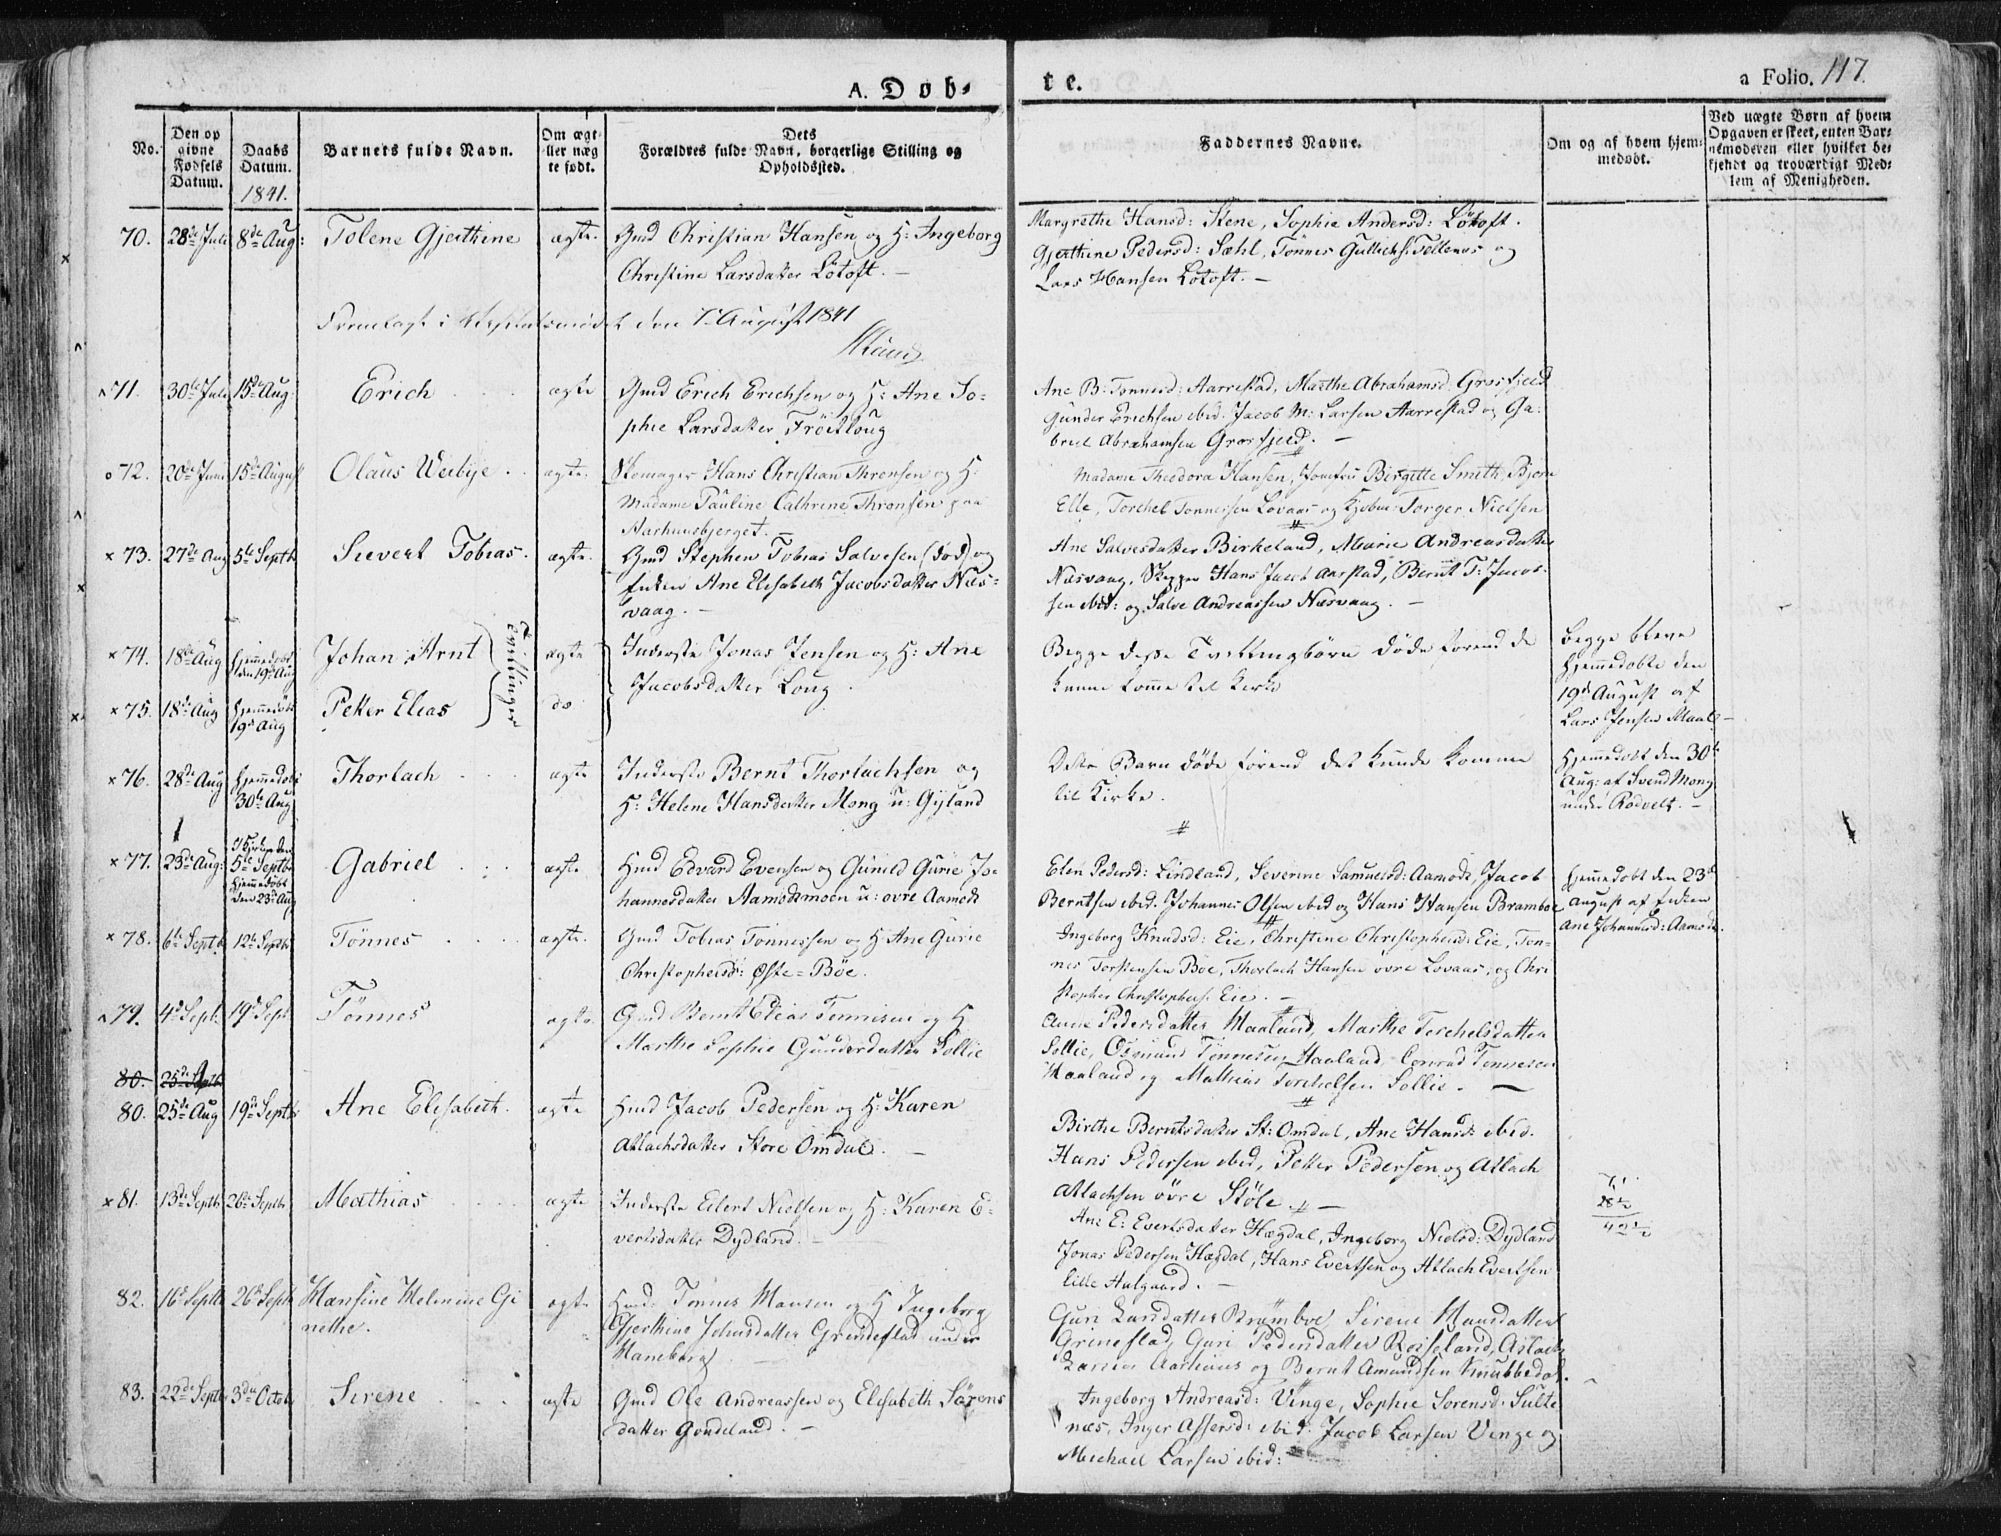 A. Døb-
te.
a Folio. 117.
No.
Den op
givne
Fødsels
Datum.
Daabs
Datum.
1841.
Barnets fulde Navn.
Om ægt
ller uæg
te født.
Dets
Forældres fulde Navn, borgerlige Stilling og
Opholdssted.
Faddernes Navne.
Om og af hvem hjem-
medøbt.
Ved uægte Børn af hvem
Opgaven er skeet, enten Bar-
nemoderen eller hvilket be-
kjendt og troværdigt Med-
lem af Menigheden.
70. 28de Juli 8de Aug: Tolene Gjerthine ægte. Gmd Christian Hansen og H: Ingeborg
Christine Larsdatter Lötoft. —
Margrethe Hansd: Stene, Sophie Andersd: Lötoft.
Gjerthine Pedersd: Sæhl, Tönnes Gullichs: Tellenes og
Lars Hansen Lötoft. —
den 7 August 1841
71. 30te Juli 15de Aug: Erich ægte Gmd Erich Erichsen og H: Ane So-
phie Larsdatter Fröitloug
Ane B: Tonnesd: Aarrestad, Marthe Abrahamsd: Grosfjeld
Gunder Erichsen ibid. Jacob M: Larsen Aarrestad og Ga-
briel Abrahamsen Grosfjeld. —
72. 20de Juni 15de August Olaus Weibye ægte. Skomager Hans Christian Thronsen og H:
Madame Pauline Cathrine Thronsen paa
Aarhuusbjerget. —
Madame Theodora Hansen, Jomfru Birgitte Smith, Bjørn
Elle, Torchel Tonnessen Lovaas og Torger Nielsen
73. 27de Aug 5te Septbr Sievert Tobias. ægte. Gmd Stephen Tobias Salvesen (död) og
Enken Ane Elisabeth Jacobsdatter Næs-
vaag. —
Ane Salvesdatter Birkeland, Marie Andreasdatter
Næsvaag, Skipper Hans Jacob Aarstad, Bernt T: Jacob-
sen ibid: og Salve Andreassen Næsvaag. —
74. 18de Aug Hjemmedöbt
den 19de Aug Johan Arnt ægte Inderste Jonas Jensen og H: Ane
Jacobsdatter Loug.
Tvillinger
Begge disse Tvillingbörn döde forend de
kunne komme til Kirke
Begge bleve
hjemmedöbte den
19d August af
Lars Jensen Maal —
75. 18de Aug Hjemmedöbt
19d Aug Petter Elias do
76. 28de Aug Hjemmedöbt
30te Aug Thorlach ægte Inderste Bernt Thorlachsen og
H: Helene Hansdatter Mong u: Gyland
Dette Barn döde forend det kunde komme
til Kirke.
Hjemmedöbt den 30te
Aug: af Svend Mong
under Rödvelt. —
77. 23de Aug: I Kirken den
5te Septbr
Hjemmedöbt
den 23d Aug Gabriel ægte Hmd Edvard Evensen og Gunild Gurie Jo-
hannesdatter Aamodtmoen u: ovre Aamodt
Elen Pedersd: Lindland, Severine Samuelsd: Aamodt, Jacob
Berntsen ibid. Johannes Olsen ibid og Hans Hansen Bramboe
Hjemmedöbt den 23d
August af Enken
Ane Johannesd: Aamodt.
78. 6te Septbr 12te Septbr Tönnes ægte. Gmd Tobias Tonnessen og H: Ane Gurie
Christophersd: Øste-Böe.
Ingeborg Knudsd: Eie, Christine Christophersd: Eie, Ton-
nes Torstensen Böe, Thorlach Hansen övre Lovaas, og Chri-
stopher Christophers. Eie. —
79. 4d Sept. 19d Sept Tönnes ægte. Gmd Bernt Elias Tönnesen og H
Marthe Sophie Gundersdatter Sollie
Anne Pedersdatter Maaland, Marthe Terchelsdatter
Sollie, Osmund Tönnesen Haaland Conrad Tönnesen
Maaland og Mathias Torchelsen Sollie. —
80. 25de Septbr
80. 25de Aug 19de Septbr Ane Elisabeth. ægte Hmd Jacob Pedersen og H: Karen
Atlachsdatter Store Omdal. —
Birthe Berntsdatter St: Omdal, Ane Hansd: ibid.
Hans Pedersen ibid, Petter Pedersen og Atlach
Atlachsen övre Stöle. —
81. 13de Septbr 26de Septbr Mathias ægte Inderste Eilert Nielsen og H: Karen E-
vertsdatter Dydland. —
Ane E: Evertsdatter Hægdal, Ingeborg Nielsd: Dydland
Jonas Pedersen Hægdal, Hans Evertsen og Atlach Evertsen
lille Aalgaard. —
82. 16de Septbr 26de Septbr Hansine Helmine Gi-
nethe. ægte Hmd: Tönnes Hansen og H Ingeborg
Gjerthine Johnsdatter Grindestad under
Haneberg
Guri Larsdatter Bramboe, Sirene Hansdatter
Grinestad, Guri Pedersdatter Roiseland, Aslach
Larsen Aarhuus og Bernt Amundsen Knubbedal.
83. 22de Septbr 3die Octob Sirene ægte Gmd Ole Andreassen og Elisabeth Sörens
datter Gondeland. —
Ingeborg Andreasd: Vinge, Sophie Sorensd: Sulte-
næs, Inger Assersd: ibid. Jacob Larsen Vinge og
Michael Larsen ibid: